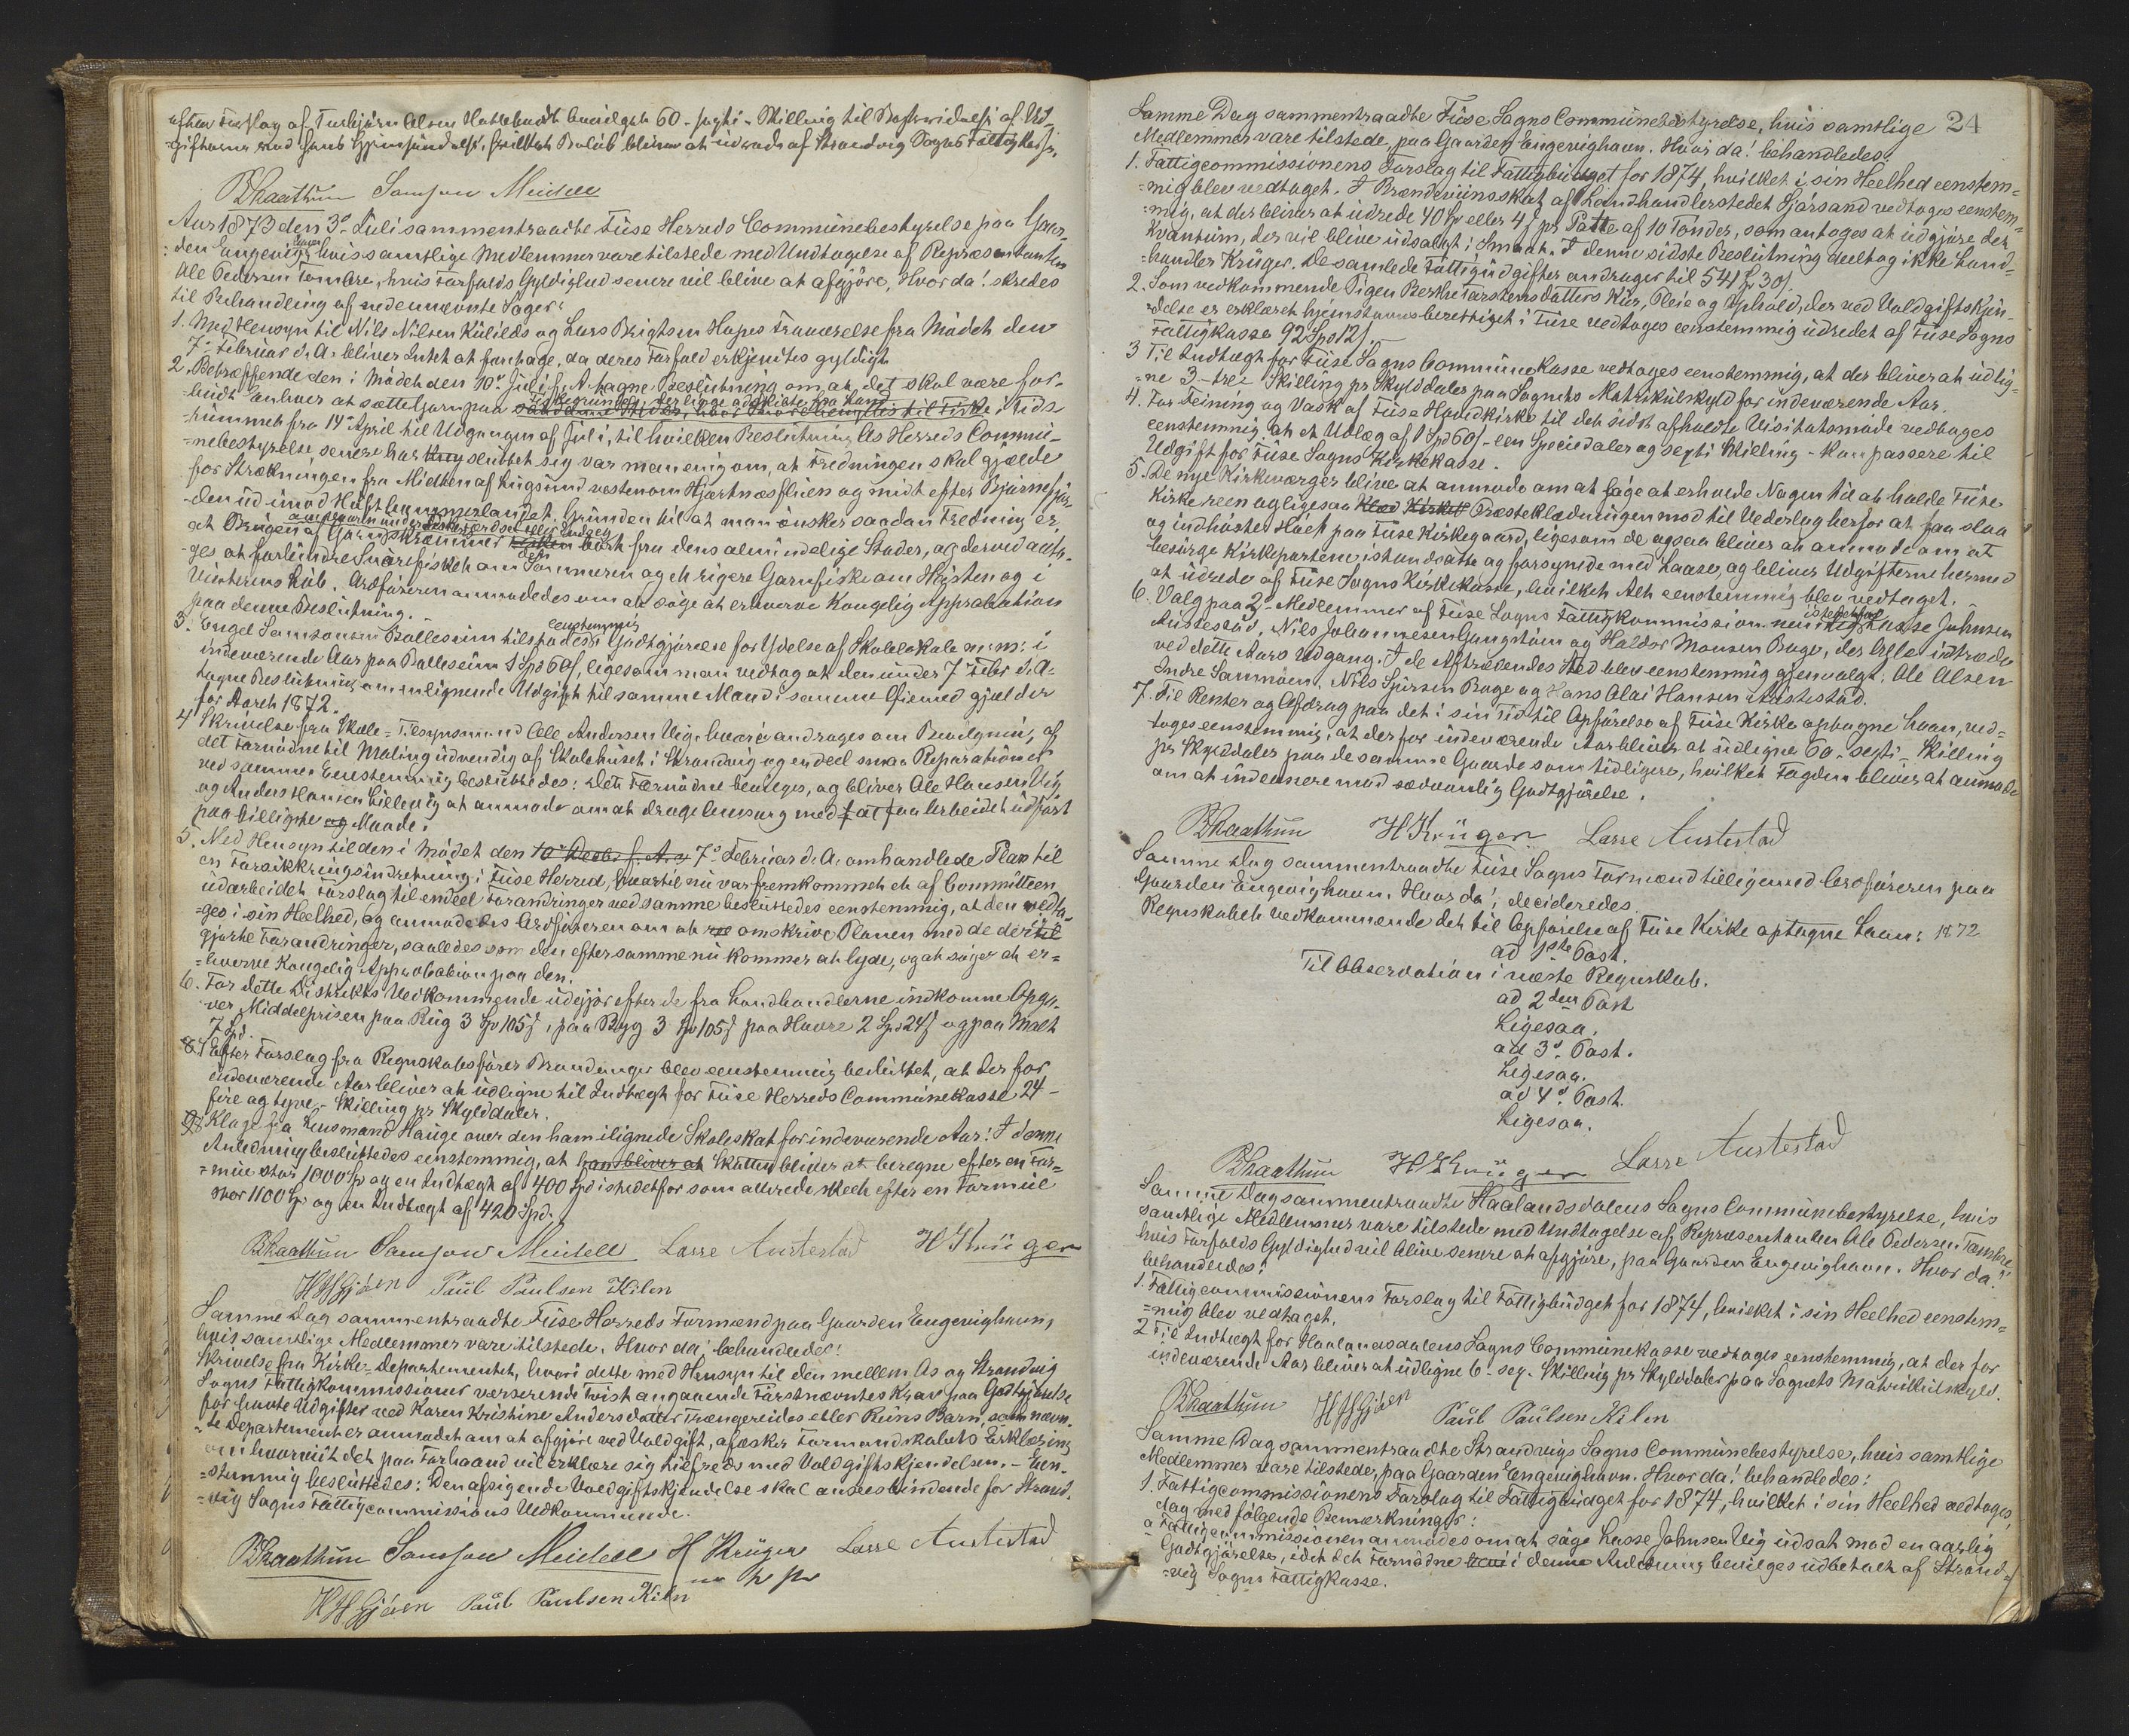 efter Forslag af Torbjørn Olsen Hattebredt bevilges 60 - sexti - Skilling til Bestridelse af Ud-
gifterne ved hans Hjemsendelse, hvilket Beløb bliver at udrede af Strandvig Sogns Fattigkasse.
BKaathum Samson Meidell
Aar 1873 den 3die Juli sammentraadte Fuse Herreds Communebestyrelse paa Gaar-
den Engevighavn hvis samtlige Medlemmer vare tilstede med Undtagelse af Repræsentanten
Ole Pedersen Tombre, hvis Forfalds Gyldighed senere vil blive at afgjøre, Hvor da! skredes
til Behandling af nedennævnte Sager:
1. Med Hensyn til Nils Nilsen Kulilds og Lars Brigtsen Hopes Fraværelse fra Mødet den
7de Februar d. A. bliver Intet at foretage, da deres Forfald erkjendtes gyldigt.
2. Betræffende den i Mødet den 10de Juli f. A. tagne Beslutning om at det skal være for-
budt enhver at sætte Garn paa Fiskegrunde, der ligge adskilte fra Land i Tids-
rummet fra 14de April til Udgangen af Juli, til hvilken Beslutning Os Herreds Commu-
nebestyrelse senere har sluttet sig var man enig om, at Fredningen skal gjælde
for Strækningen fra Midten af Lugsund vestenom Hjartnæsflüen og midt efter Bjørnefjor-
den ud imod Huftehammerlandet. Grunden til at man ønsker saadan Fredning er,
at Brugen af Garn skræmmer Fisken bort fra dens almindelige Steder, og derved anta-
ges at forhindre Snørefisket om Sommeren og et rigere Garnfiske om Høsten og i
Vinterens Løb. Ordføreren anmodedes om at søge at erhverve Kongelig Approbation
paa denne Beslutning.
3. Engel Samsonsen Balleseim tilstodes eenstemmig Godtgjørelse for Ydelse af Skolelokale m: m: i
indeværende Aar paa Balleseim 1 Spd 60 s, ligesom man vedtog at den under 7de Febr d. A.
tagne Beslutning om lignende Udgift til samme Mand i samme Øiemed gjælder
for Aaret 1872.
4 Skrivelse fra Skole-Tilsynsmand Ole Andersen Vig, hvori andrages om Bevilgning af
det Fornødne til Maling udvendig af Skolehuset i Strandvig og endeel smaa Reparationer
ved samme. Eenstemmig besluttedes: Det Fornødne bevilges, og bliver Ole Hansen Vig
og Anders Hansen Lillevig at anmode om at drage Omsorg med at faa Arbeidet udført
paa billigste Maade.
5. Med Hensyn til den i Mødet den 10de Decbr f. A. og 7de Februar d. A. omhandlede Plan til
en Forsikkringsindretning i Fuse Herred, hvortil nu var fremkommet et af Committeen
udarbeidet Forslag til endeel Forandringer ved samme besluttedes eenstemmig, at den vedta-
ges i sin Heelhed, og anmodedes Ordføreren om at omskrive Planen med de dertil
gjorte Forandringer, saaledes som den efter samme nu kommer at lyde, og at søger at er-
hverve Kongelig Approbation paa den.
6. For dette Distrikts Vedkommende udgjør efter de fra Landhandlerne indkomne Opga-
ver Middelprisen paa Rug 3 Spd 105 s, paa Byg 3 Spd 105 s paa Havre 2 Spd 24 s og paa Malt
7 Spd.
7 Efter Forslag fra Regnskabsfører Brandanger blev eenstemmig besluttet, at der for
indeværende Aar bliver at udligne til Indtægt for Fuse Herreds Communekasse 24 -
fire og tyve - Skilling pr Skylddaler.
8 Klage fra Lensmand Hauge over den ham ilignede Skoleskat for indeværende Aar: I denne
Anledning besluttedes eenstemmig, at han bliver at Skatten bliver at beregne efter en For-
mue stor 1000 Spd og en Indtægt af 400 Spd istedetfor som allerede skeet efter en Formue
stor 1100 Spd og en Indtægt af 420 Spd.
BKaathum Samson Meidell Lasse Austestad H Krüger
HHGjøen Paul Paulsen Kilen
Samme Dag sammentraadte Fuse Herreds Formænd paa Gaarden Engevighavn,
hvis samtlige Medlemmer vare tilstede. Hvor da! behandledes:
Skrivelse fra Kirke-Departementet, hvori dette med Hensyn til den mellem Os og Strandvig
Sogns Fattigkommissioner verserende Tvist angaaende Førstnævntes Krav paa Godtgjørelse
for havte Udgifter ved Karen Kristine Andersdatter Trængereides eller Runs Barn, som nævn-
te Departement er anmodet om at afgjøre ved Voldgift, afæsker Formandskabets Erklæring
om hvorvidt det paa Forhaand vil erklære sig tilfreds med Voldgiftskjendelsen. - Een-
stemmig besluttedes: Den afsigende Voldgiftskjendelse skal ansees bindende for Strand-
vig Sogns Fattigcommissions Vedkommende.
BKaathum Samson Meidell H Krüger Lasse Austestad
HHGjøen Paul Paulsen Kilen
24
Samme Dag sammentraadte Fuse Sogns Communebestyrelse, hvis samtlige
Medlemmer vare tilstede, paa Gaarden Engevighavn. Hvor da! behandledes:
1. Fattigcommissionens Forslag til Fattigbudget for 1874, hvilket i sin Heelhed eenstem-
mig blev vedtaget. I Brændeviinsskat af Landhandlerstedet Sjørsand vedtoges eenstem-
mig, at der bliver at udrede 40 Spd eller 4 s pr Potte af 10 Tønder, som antoges at udgjøre det
Kvantum, der vil blive udsalgt i Smaat. I denne sidste Beslutning deeltog ikke Land-
handler Krüger. De samlede Fattigudgifter andrager til 541 Spd 30 s.
2. Som vedkommende Pigen Berthe Torstensdatters Kur, Pleie og Ophold, der ved Voldgiftskjen-
delse er erklæret hjemstavnsberettiget i Fuse vedtoges eenstemmig udredet af Fuse Sogns
Fattigkasse 92 Spd 12 s.
3 Til Indtægt for Fuse Sogns Communekasse vedtoges eenstemmig, at der bliver at udlig-
ne 3 - tre - Skilling pr Skylddaler paa Sognets Matrikulskyld for indeværende Aar.
4. For Feining og Vask af Fuse Hovedkirke til det sidst afholdte Visitatsmøde vedtoges
eenstemmig at et Udlæg af 1 Spd 60 s - een Speciedaler og sexti Skilling - kan passere til
Udgift for Fuse Sogns Kirkekasse.
5. De nye Kirkeværger blive at anmode om at søge at erholde Nogen til at holde Fuse
Kirke reen og ligesaa Præsteklædningen mod til Vederlag herfor at faa slaa
og indhøste Høet paa Fuse Kirkegaard, ligesom de ogsaa bliver at anmode om at
besørge Kirkeporten istandsatte og forsynede med Laase, og bliver Udgifterne hermed
at udrede af Fuse Sogns Kirkekasse, hvilket Alt eenstemmig blev vedtaget.
6. Valg paa 2de Medlemmer af Fuse Sogns Fattigkommission istedetfor Lasse Johnsen
Austestad, Nils Johannesen Gangstøm og Haldor Monsen Boge, der Alle udtræde
ved dette Aars Udgang. I de Aftrædendes Sted blev eenstemmig gjenvalgt: Ole Olsen
Indre Sannøen, Nils Sjursen Boge og Hans Olai Hansen Austestad.
7. Til Renter og Afdrag paa det i sin Tid til Opførelse af Fuse Kirke optagne Laan, ved-
toges eenstemmig, at der for indeværende Aar bliver at udligne 60 - sexti - Skilling
pr Skylddaler paa de samme Gaarde som tidligere, hvilket Fogden bliver at anmode
om at indcassere mod sædvanlig Godtgjørelse.
BKaathum H Krüger Lasse Austestad
Samme Dag sammentraadte Fuse Sogns Formænd tilligemed Ordføreren paa
Gaarden Engevighavn. Hvor da! decideredes
Regnskabet vedkommende det til Opførelse af Fuse Kirke optagne Laan: 1872
ad 1ste Post.
Til Observation i næste Regnskab.
ad 2den Post
Ligesaa.
ad 3die Post.
Ligesaa.
ad 4de Post.
Ligesaa.
BKaathum H Krüger Lasse Austestad
Samme Dag sammentraadte Haalandsdalens Sogns Communebestyrelse, hvis
samtlige Medlemmer vare tilstede med Undtagelse af Repræsentanten Ole Pedersen Tombre,
hvis Forfalds Gyldighed vil blive senere at afgjøre, paa Gaarden Engevighavn. Hvor da!
behandledes:
1. Fattigcommissionens Forslag til Fattigbudget for 1874, hvilket i sin Heelhed eenstem-
mig blev vedtaget.
2 Til Indtægt for Haalandsdalens Sogns Communekasse vedtoges eenstemmig, at der for
indeværende Aar bliver at udligne 6 - sex - Skilling pr Skylddaler paa Sognets Matrikulskyld.
BKaathum HHGjøen Paul Paulsen Kilen
Samme Dag sammentraadte Strandvigs Sogns Communebestyrelse, hvis samtlige
Medlemmer vare tilstede, paa Gaarden Engevighavn. Hvor da! behandledes:
1. Fattigcommissionens Forslag til Fattigbudget for 1874, hvilket i sin Heelhed vedtoges,
dog med følgende Bemærkninger:
a Fattigcommissionen anmodes om at søge Lasse Johnsen Vig udsat mod en aarlig
Godtgjørelse, idet det Fornødne i denne Anledning bevilges udbetalt af Strand-
vig Sogns Fattigkasse.